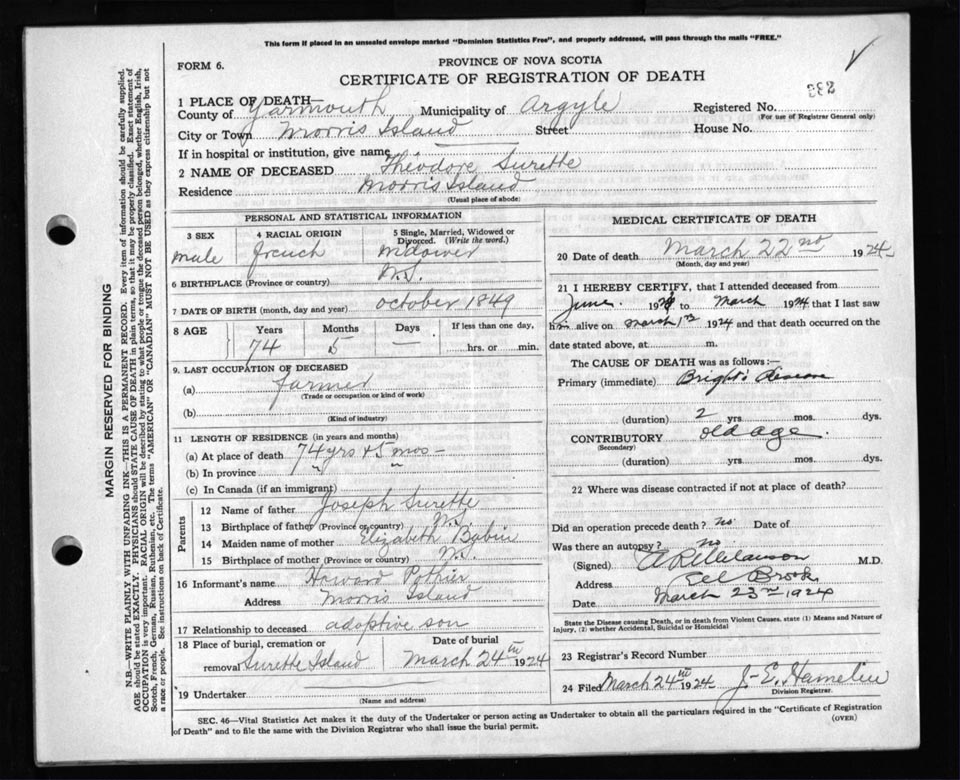 This form if placed in an unsealed envelope marked "Dominion Statistics Free", and properly addressed, will pass through the mails "FREE."
FORM 6.
PROVINCE OF NOVA SCOTIA
CERTIFICATE OF REGISTRATION OF DEATH
1 PLACE OF DEATH—
County of Yarmouth Municipality of Argyle Registered No.
(For use of Registrar General only)
City or Town Morris Island Street House No.
If in hospital or institution, give name
2 NAME OF DECEASED Theodore Surette
Residence Morris Island
(Usual place of abode)
PERSONAL AND STATISTICAL INFORMATION
3 SEX 4 RACIAL ORIGIN 5 Single, Married, Widowed or Divorced. (Write the word.)
male French Widower
6 BIRTHPLACE (Province or country) N.S.
7 DATE OF BIRTH (month, day and year) October 1849
8 AGE Years Months Days If less than one day,
74 5 — hrs. or min.
9. LAST OCCUPATION OF DECEASED
(a) farmer
(Trade or occupation or kind of work)
(b)
(Kind of industry)
11 LENGTH OF RESIDENCE (in years and months)
(a) At place of death 74 yrs & 5 mos —
(b) In province " "
(c) In Canada (if an immigrant)
Parents
12 Name of father Joseph Surette
13 Birthplace of father (Province or country) N.S.
14 Maiden name of mother Elizabeth Babin
15 Birthplace of mother (Province or country) N.S.
16 Informant's name Howard Pothier
Address Morris Island
17 Relationship to deceased adoptive son
18 Place of burial, cremation or removal Surette Island
Date of burial March 24th 1924
19 Undertaker
(Name and address)
MEDICAL CERTIFICATE OF DEATH
20 Date of death March 22nd 1924
(Month, day and year)
21 I HEREBY CERTIFY, that I attended deceased from
June 192 to March 1924 that I last saw
him alive on March 1st 1924 and that death occurred on the
date stated above, at m.
The CAUSE OF DEATH was as follows:—
Primary (immediate) Bright's Disease
(duration) 2 yrs mos. dys.
CONTRIBUTORY old age.
(Secondary)
(duration) yrs. mos. dys.
22 Where was disease contracted if not at place of death?
Did an operation precede death? no Date of
Was there an autopsy? no
(Signed) A R Melanson M.D.
Address Eel Brook
Date March 23rd 1924
State the Disease causing Death, or in death from Violent Causes, state (1) Means and Nature of
Injury, (2) whether Accidental, Suicidal or Homicidal
23 Registrar's Record Number
24 Filed March 24th 1924 J. E. Hamelin
Division Registrar.
SEC. 46—Vital Statistics Act makes it the duty of the Undertaker or person acting as Undertaker to obtain all the particulars required in the "Certificate of Registration
of Death" and to file the same with the Division Registrar who shall issue the burial permit.
(OVER)
MARGIN RESERVED FOR BINDING
N.B.—WRITE PLAINLY WITH UNFADING INK—THIS IS A PERMANENT RECORD. Every item of information should be carefully supplied.
AGE should be stated EXACTLY. PHYSICIANS should STATE CAUSE OF DEATH in plain terms, so that it may be properly classified. Exact statement of
OCCUPATION is very important. RACIAL ORIGIN will be described by stating to what people or tongue the deceased person belonged, whether English, Irish,
Scotch, French, German, Russian, Ruthenian, etc. The terms "AMERICAN" OR "CANADIAN" MUST NOT BE USED as they express citizenship but not
a race or people. See instructions on back of Certificate.